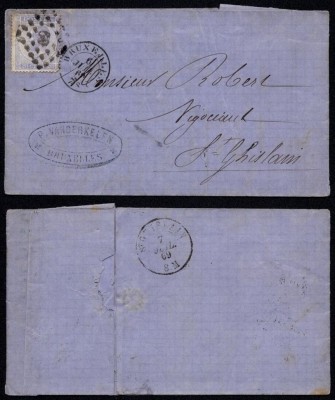 BRUXELLES
Monsieur Robert
Négociant
St Ghislain
P. VANDERKELEN
BRUXELLES
7
69